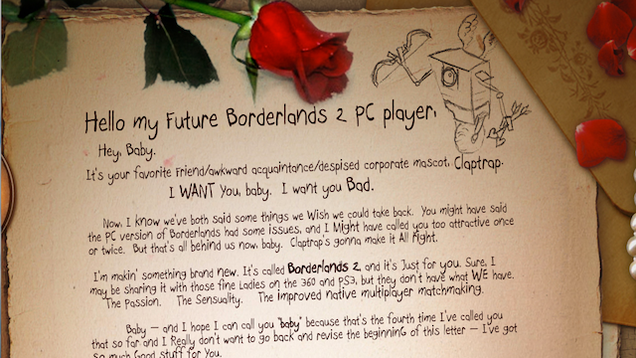 Hello my Future Borderlands 2 PC player,
Hey, Baby.
It's your favorite Friend/awkward acquaintance/despised corporate mascot, Claptrap.
I WANT You, baby. I want you Bad.
Now, I know we've both said some things we Wish we could take back. You might have said
the PC version of Borderlands had some issues, and I Might have called you too attractive once
or twice. But that's all behind us now, baby. Claptrap's gonna make it All Right.
I'm makin' something brand new. It's called Borderlands 2, and it's Just for you. Sure, I
may be sharing it with those fine Ladies on the 360 and PS3, but they don't have what WE have.
The Passion. The Sensuality. The improved native multiplayer matchmaking.
Baby — and I hope I can call you "baby" because that's the fourth time I've called you
that so far and I Really don't want to go back and revise the beginninG of this letter — I've got
so much Good stuff for You.